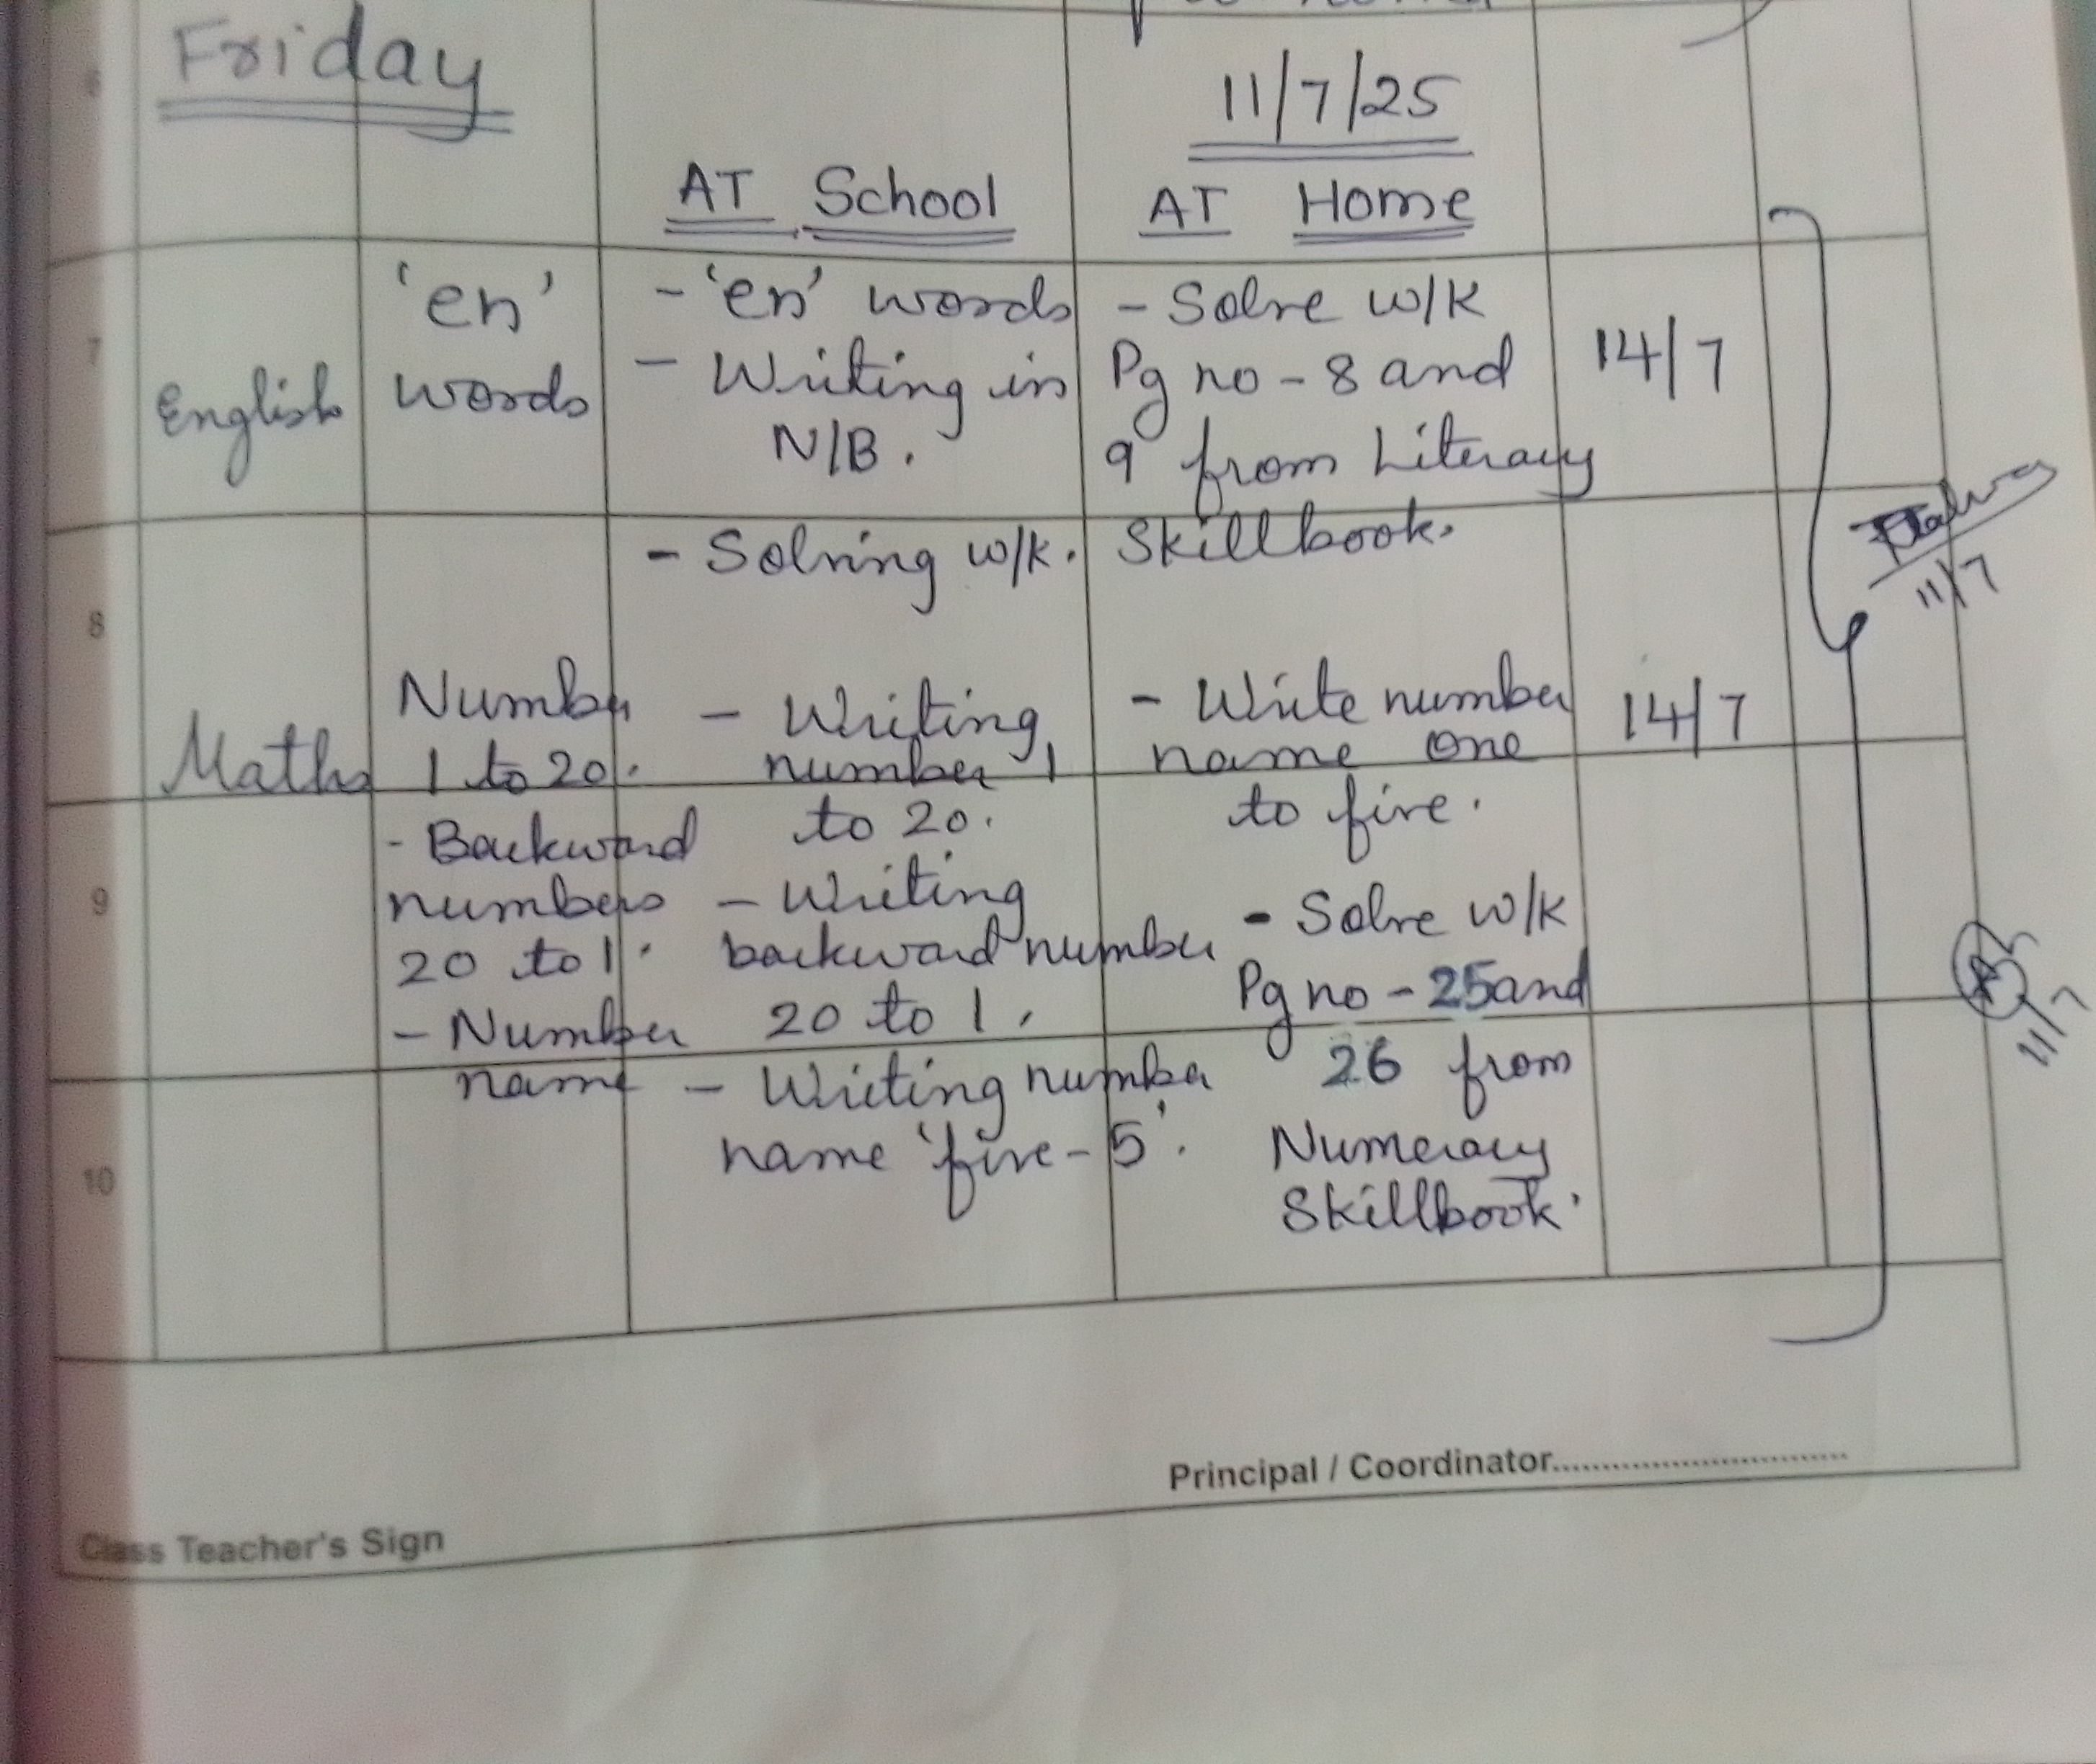 6
Friday
11/7/25
AT School
AT Home
7
English
'en' words
- 'en' words
- Writing in N/B.
- Solving w/k.
- Solve w/k
Pg no - 8 and
9 from Literacy
Skillbook.
14/7
11/7
8
Maths
Number
1 to 20.
- Backward
numbers
20 to 1.
- Number
name
- Writing
number 1
to 20.
- Writing
backward number
20 to 1.
- Writing number
name 'five - 5'.
- Write number
name one
to five.
- Solve w/k
Pg no - 25 and
26 from
Numeracy
Skillbook.
14/7
9
11/7
10
Principal / Coordinator..............................
Class Teacher's Sign